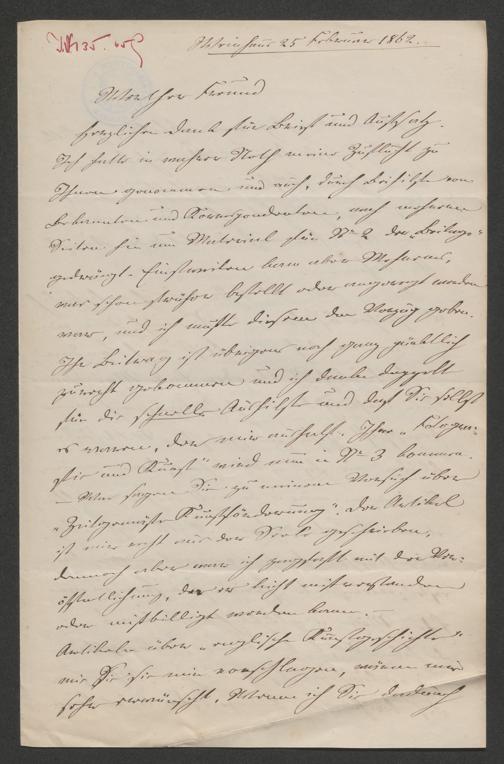 25 Februar 1862.
Werther Freund
Herzlichen Dank für Brief und Aufsatz.
Ich hatte in wahrer Noth meine Zuflucht zu
Ihnen genommen und auch, durch Beihilfe von
Bekannten und Korrespondenten, nach mehreren
Seiten hin um Material für Nº 2 der „Beilage"
gedrängt. Einstweilen kam aber Mehreres,
was schon früher bestellt oder angeregt worden
war, und ich mußte diesem den Vorzug geben.
Ihr Beitrag ist übrigens noch ganz pünktlich
zurecht gekommen und ich danke doppelt
für die schnelle Aushilfe und daß Sie selbst
es waren, der mir aushalf. Ihre
und Kunst" wird nun in Nº 3 kommen.
– Was sagen Sie zu meinem Versuch über
„Zeitgemäße Kunstförderung". Der Artikel
ist mir recht aus der Seele geschrieben,
dennoch aber war ich zaghaft mit der Ver-
öffentlichung, da er leicht mißverstanden
oder mißbilligt werden kann. –
Artikeln über „englische Kunstgeschichte"
wie Sie sie mir vorschlagen, wären mir
sehr erwünscht. Wenn ich Sie dennoch